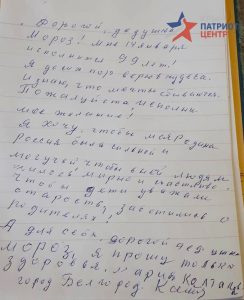 ПАТРИОТ
ЦЕНТР
Дорогой дедушка
Мороз! Мне 14 января
исполнится 99 лет!
Я до сих пор верю в чудеса.
и знаю, что мечты сбываются.
Пожалуйста, исполни
мое желание!
Я хочу, чтобы моя родина
Россия была сильной и
могучей, чтобы в ней людям
жилось мирно и счастливо.
Чтобы дети уважали
старость, заботились о
родителях!
А для себя, дорогой дед
мороз, я прошу только
здоровья.
город Белгород